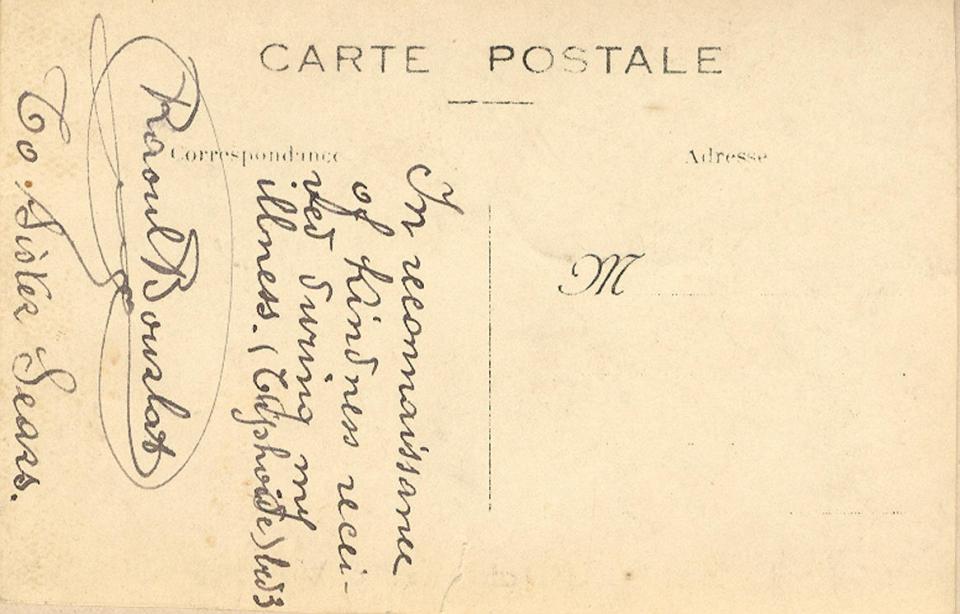 CARTE POSTALE
Correspondance
Adresse
M
In reconnaissance
of kindness recei-
ved during my
illness. (Typhoïde) bd3
Raoul Bourlat
To Sister Sears.